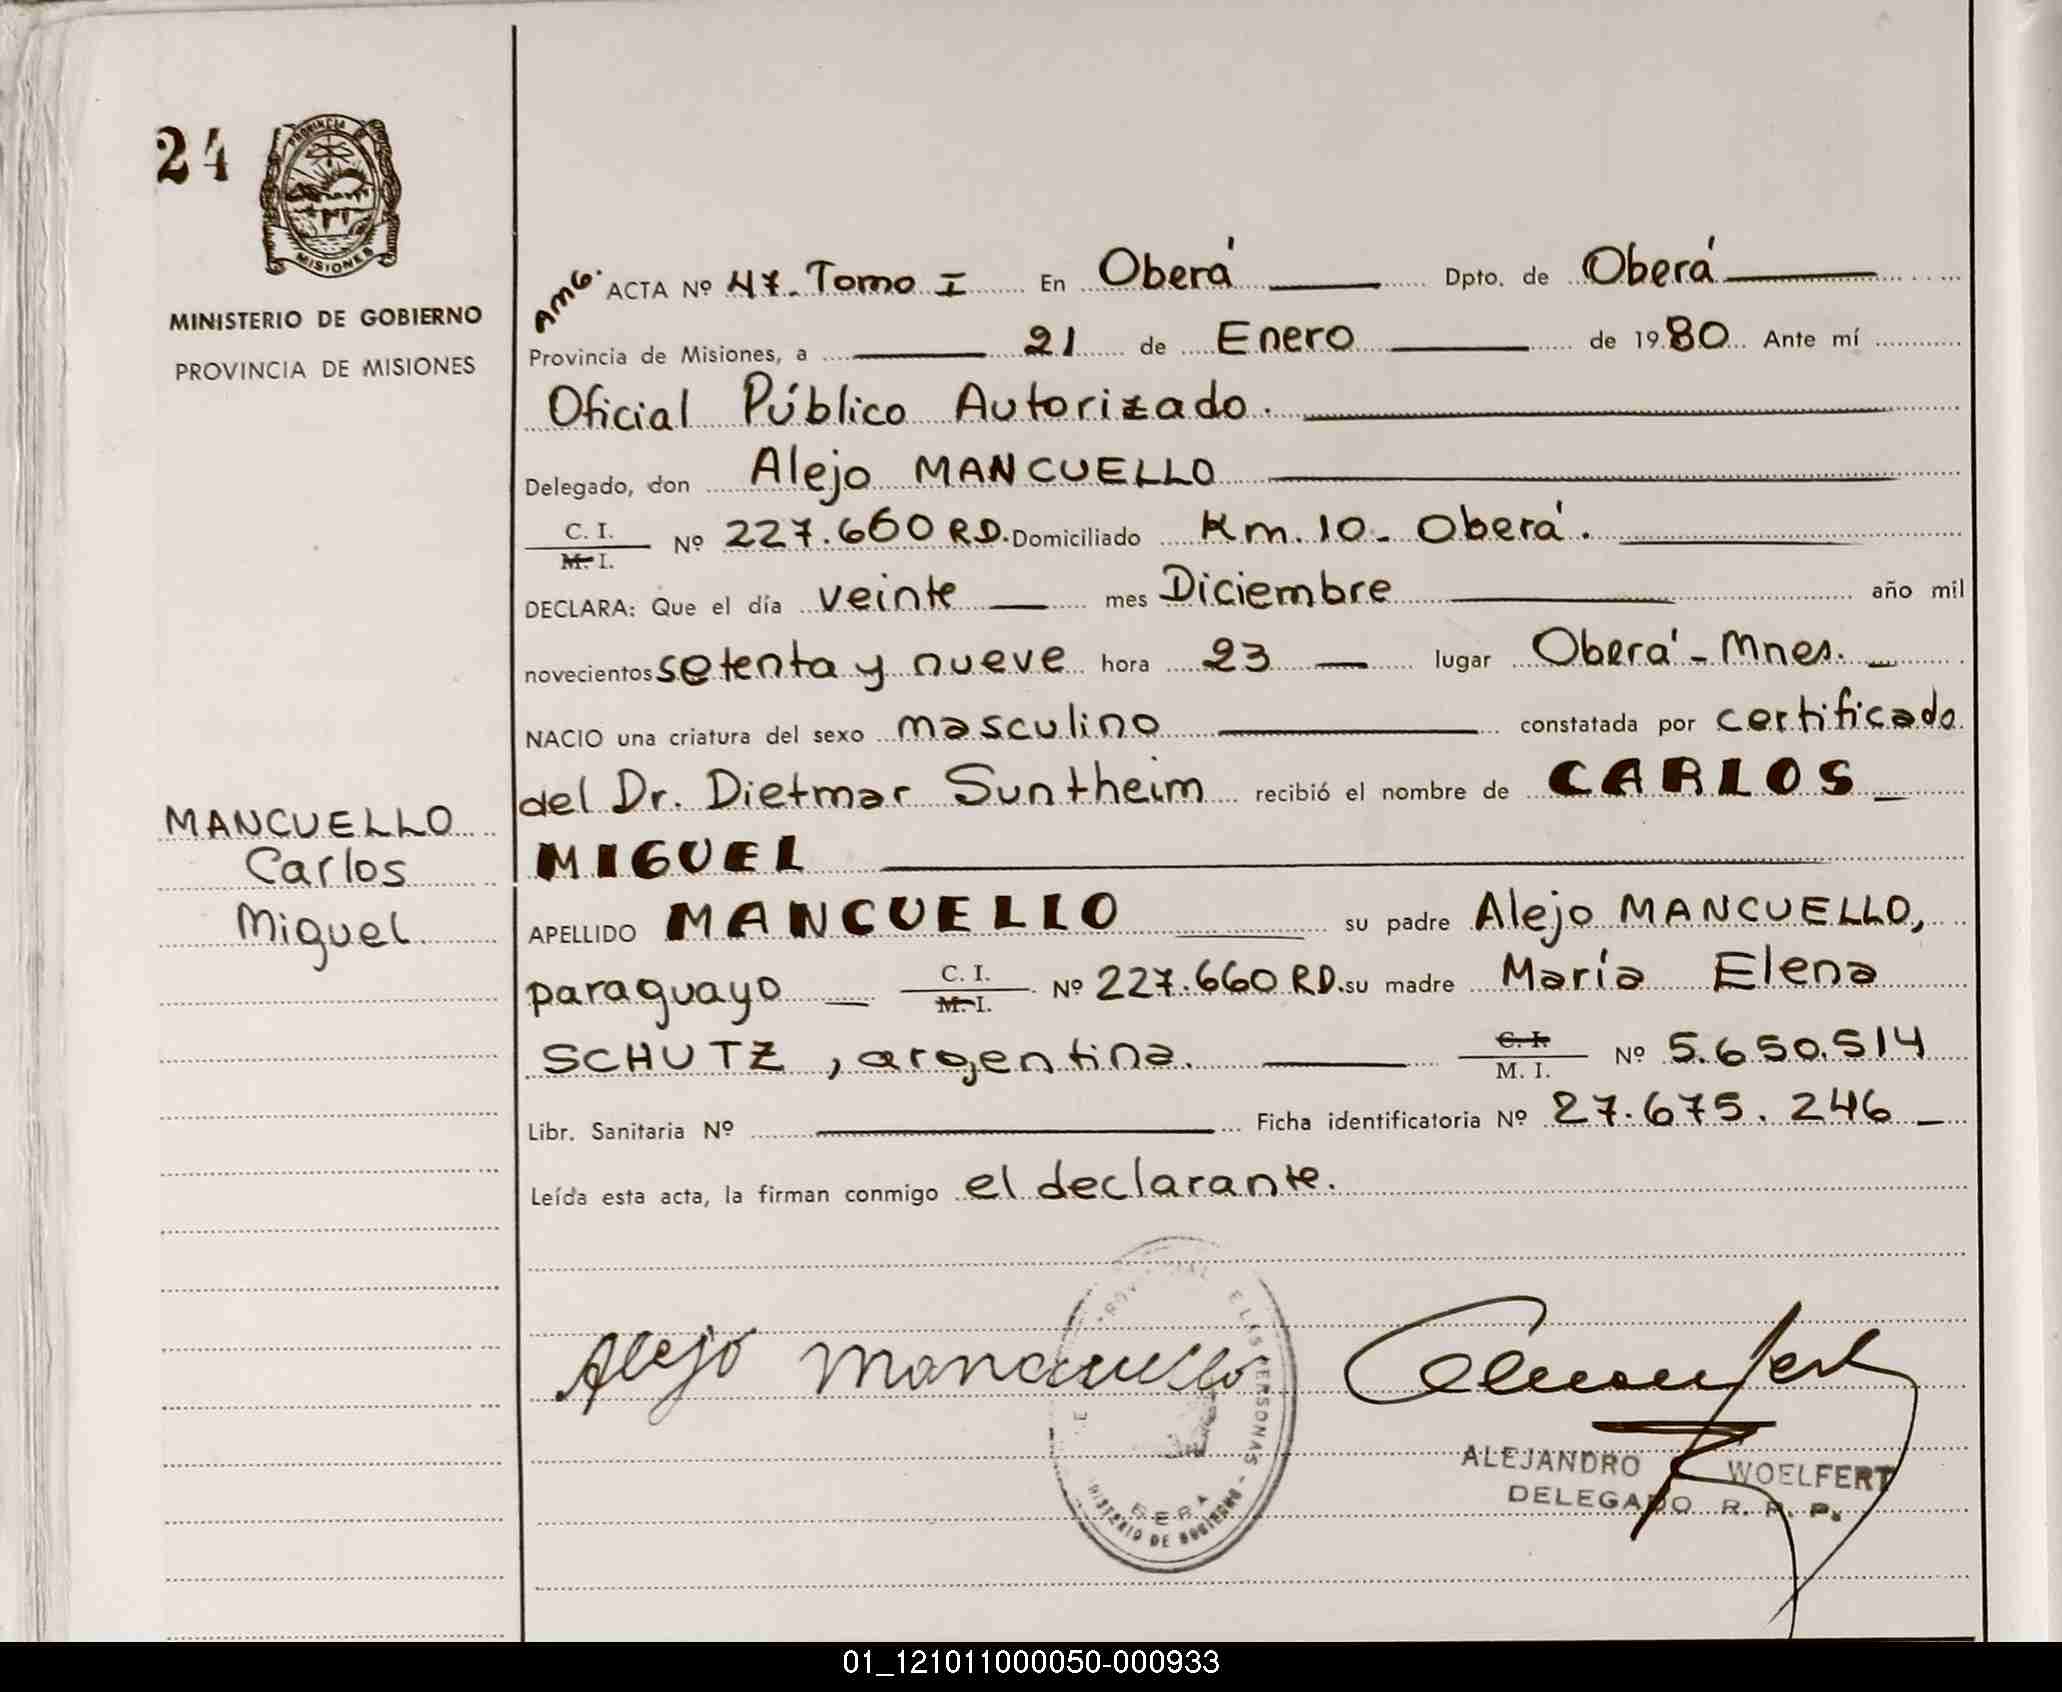 24
PROVINCIA
MISIONES
MINISTERIO DE GOBIERNO
PROVINCIA DE MISIONES
MANCUELLO
Carlos
Miguel
AMG. ACTA Nº 47. Tomo I En Oberá Dpto. de Oberá
Provincia de Misiones, a 21 de Enero de 1980 Ante mí
Oficial Público Autorizado.
Delegado, don Alejo MANCUELLO
C. I.
M. I. Nº 227.660 RD. Domiciliado Km. 10 - Oberá.
DECLARA: Que el día veinte mes Diciembre año mil
novecientos setenta y nueve hora 23 lugar Oberá - Mnes.
NACIO una criatura del sexo masculino constatada por certificado
del Dr. Dietmar Suntheim recibió el nombre de CARLOS
MIGUEL
APELLIDO MANCUELLO su padre Alejo MANCUELLO,
paraguayo C. I. M. I. Nº 227.660 RD. su madre María Elena
SCHUTZ, argentina. C. I. M. I. Nº 5.650.514
Libr. Sanitaria Nº Ficha identificatoria Nº 27.675.246
Leída esta acta, la firman conmigo el declarante.
Alejo Mancuello
PERSONAS
DE GOBIERNO
ALEJANDRO WOELFERT
DELEGADO R. P. P.
01_121011000050-000933